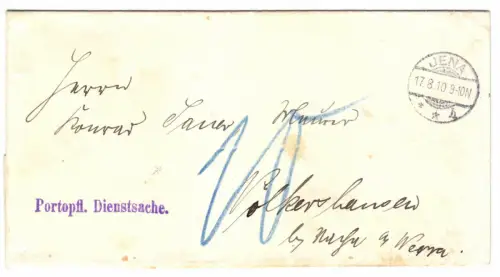 JENA
17.8.10.9-10N
* * 4
Herrn
Konrad Maurer
10
Portopfl. Dienstsache.
Völkershausen
by Vacha a Werra